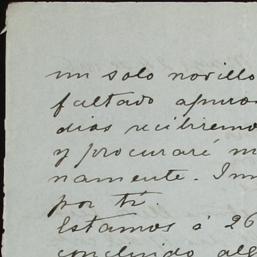 un solo novillo
faltado apuro
dias recibiremo
y procuraré m
namente. Inm
por tí.
Estamos á 26
concluido alg